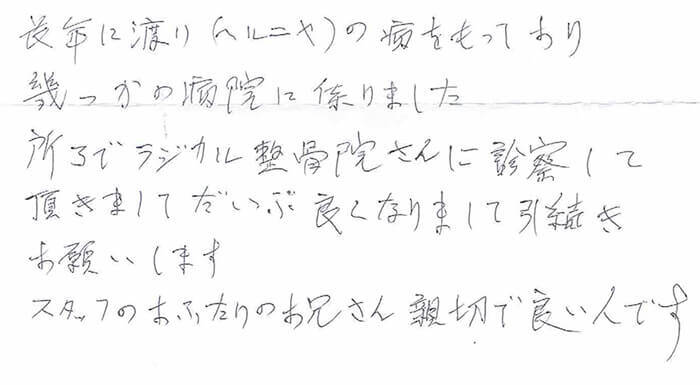 長年に渡り(ヘルニヤ)の病をもっており
幾つかの病院に係りました
所でラジカル整骨院さんに診察して
頂きましてだいぶ良くなりまして引続き
お願いします
スタッフのおふたりのお兄さん親切で良い人です